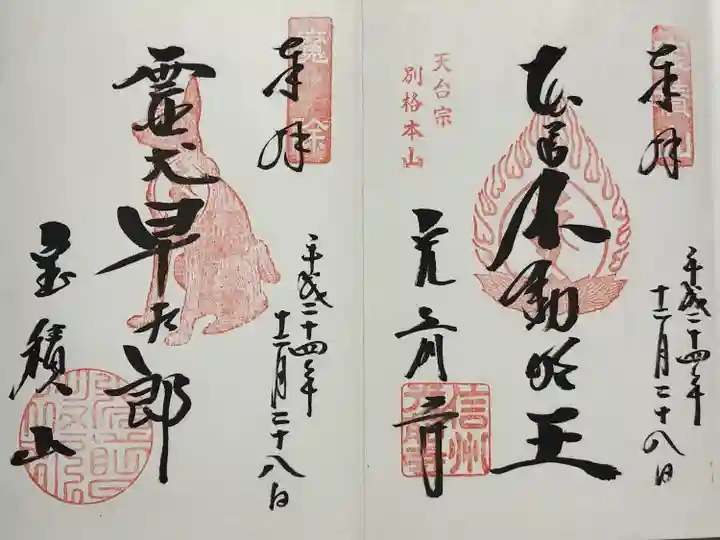 奉拝
天台宗
別格本山
本尊不動明王
平成二十四年
十二月二十八日
光前寺
信州
光前寺
奉拝
魔除
霊犬早太郎
平成二十四年
十二月二十八日
宝積山